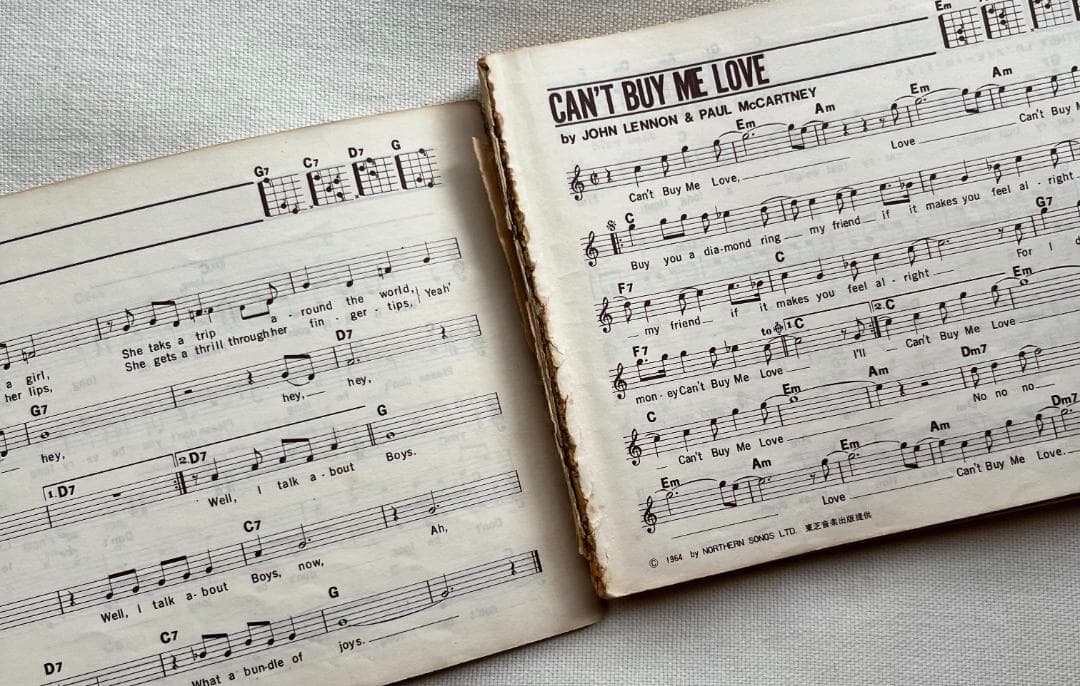 G7 C7 D7 G
a girl, She taks a trip a - round the world,
her lips, She gets a thrill through her fin - ger - tips, Yeah'
G7 D7
hey, hey, hey,
1. D7 2. D7 G
Well, I talk a - bout Boys.
C7
Well, I talk a - bout Boys, now, Ah,
D7 C7 G
What a bun - dle of joys.
Em
CAN'T BUY ME LOVE
by JOHN LENNON & PAUL McCARTNEY
Em Am Em Am
Can't Buy Me Love, Love Can't Buy
C
Buy you a dia - mond ring my friend if it makes you feel al - right
F7 C G7
my friend if it makes you feel al - right For I
F7 to 1. C 2. C Em
mon - ey Can't Buy Me Love I'll Can't Buy Me Love
C Em Am Dm7
Can't Buy Me Love No no no
Em Am Em Am Dm7
Love Can't Buy Me Love.
© 1964 by NORTHERN SONGS LTD. 東芝音楽出版提供